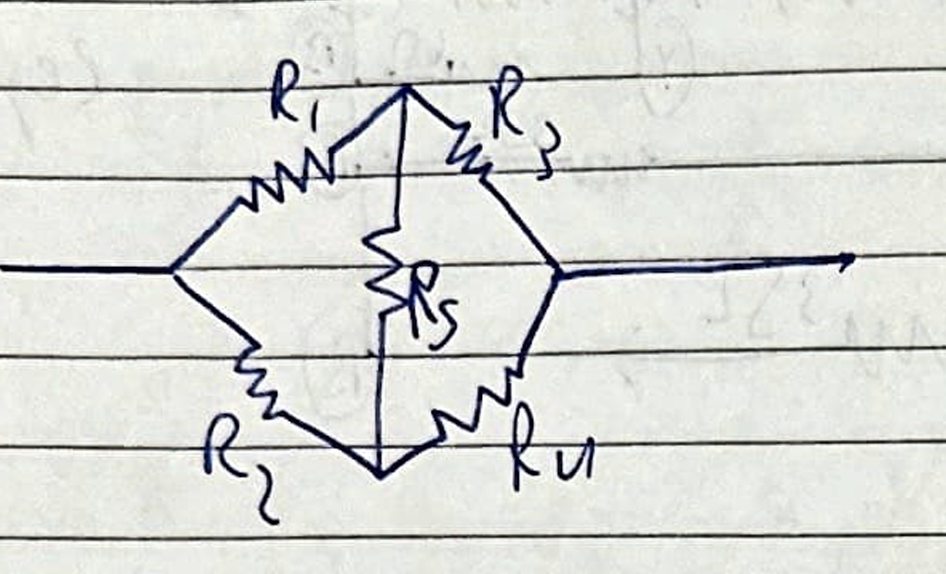 R1 R3
R5
R2 R4